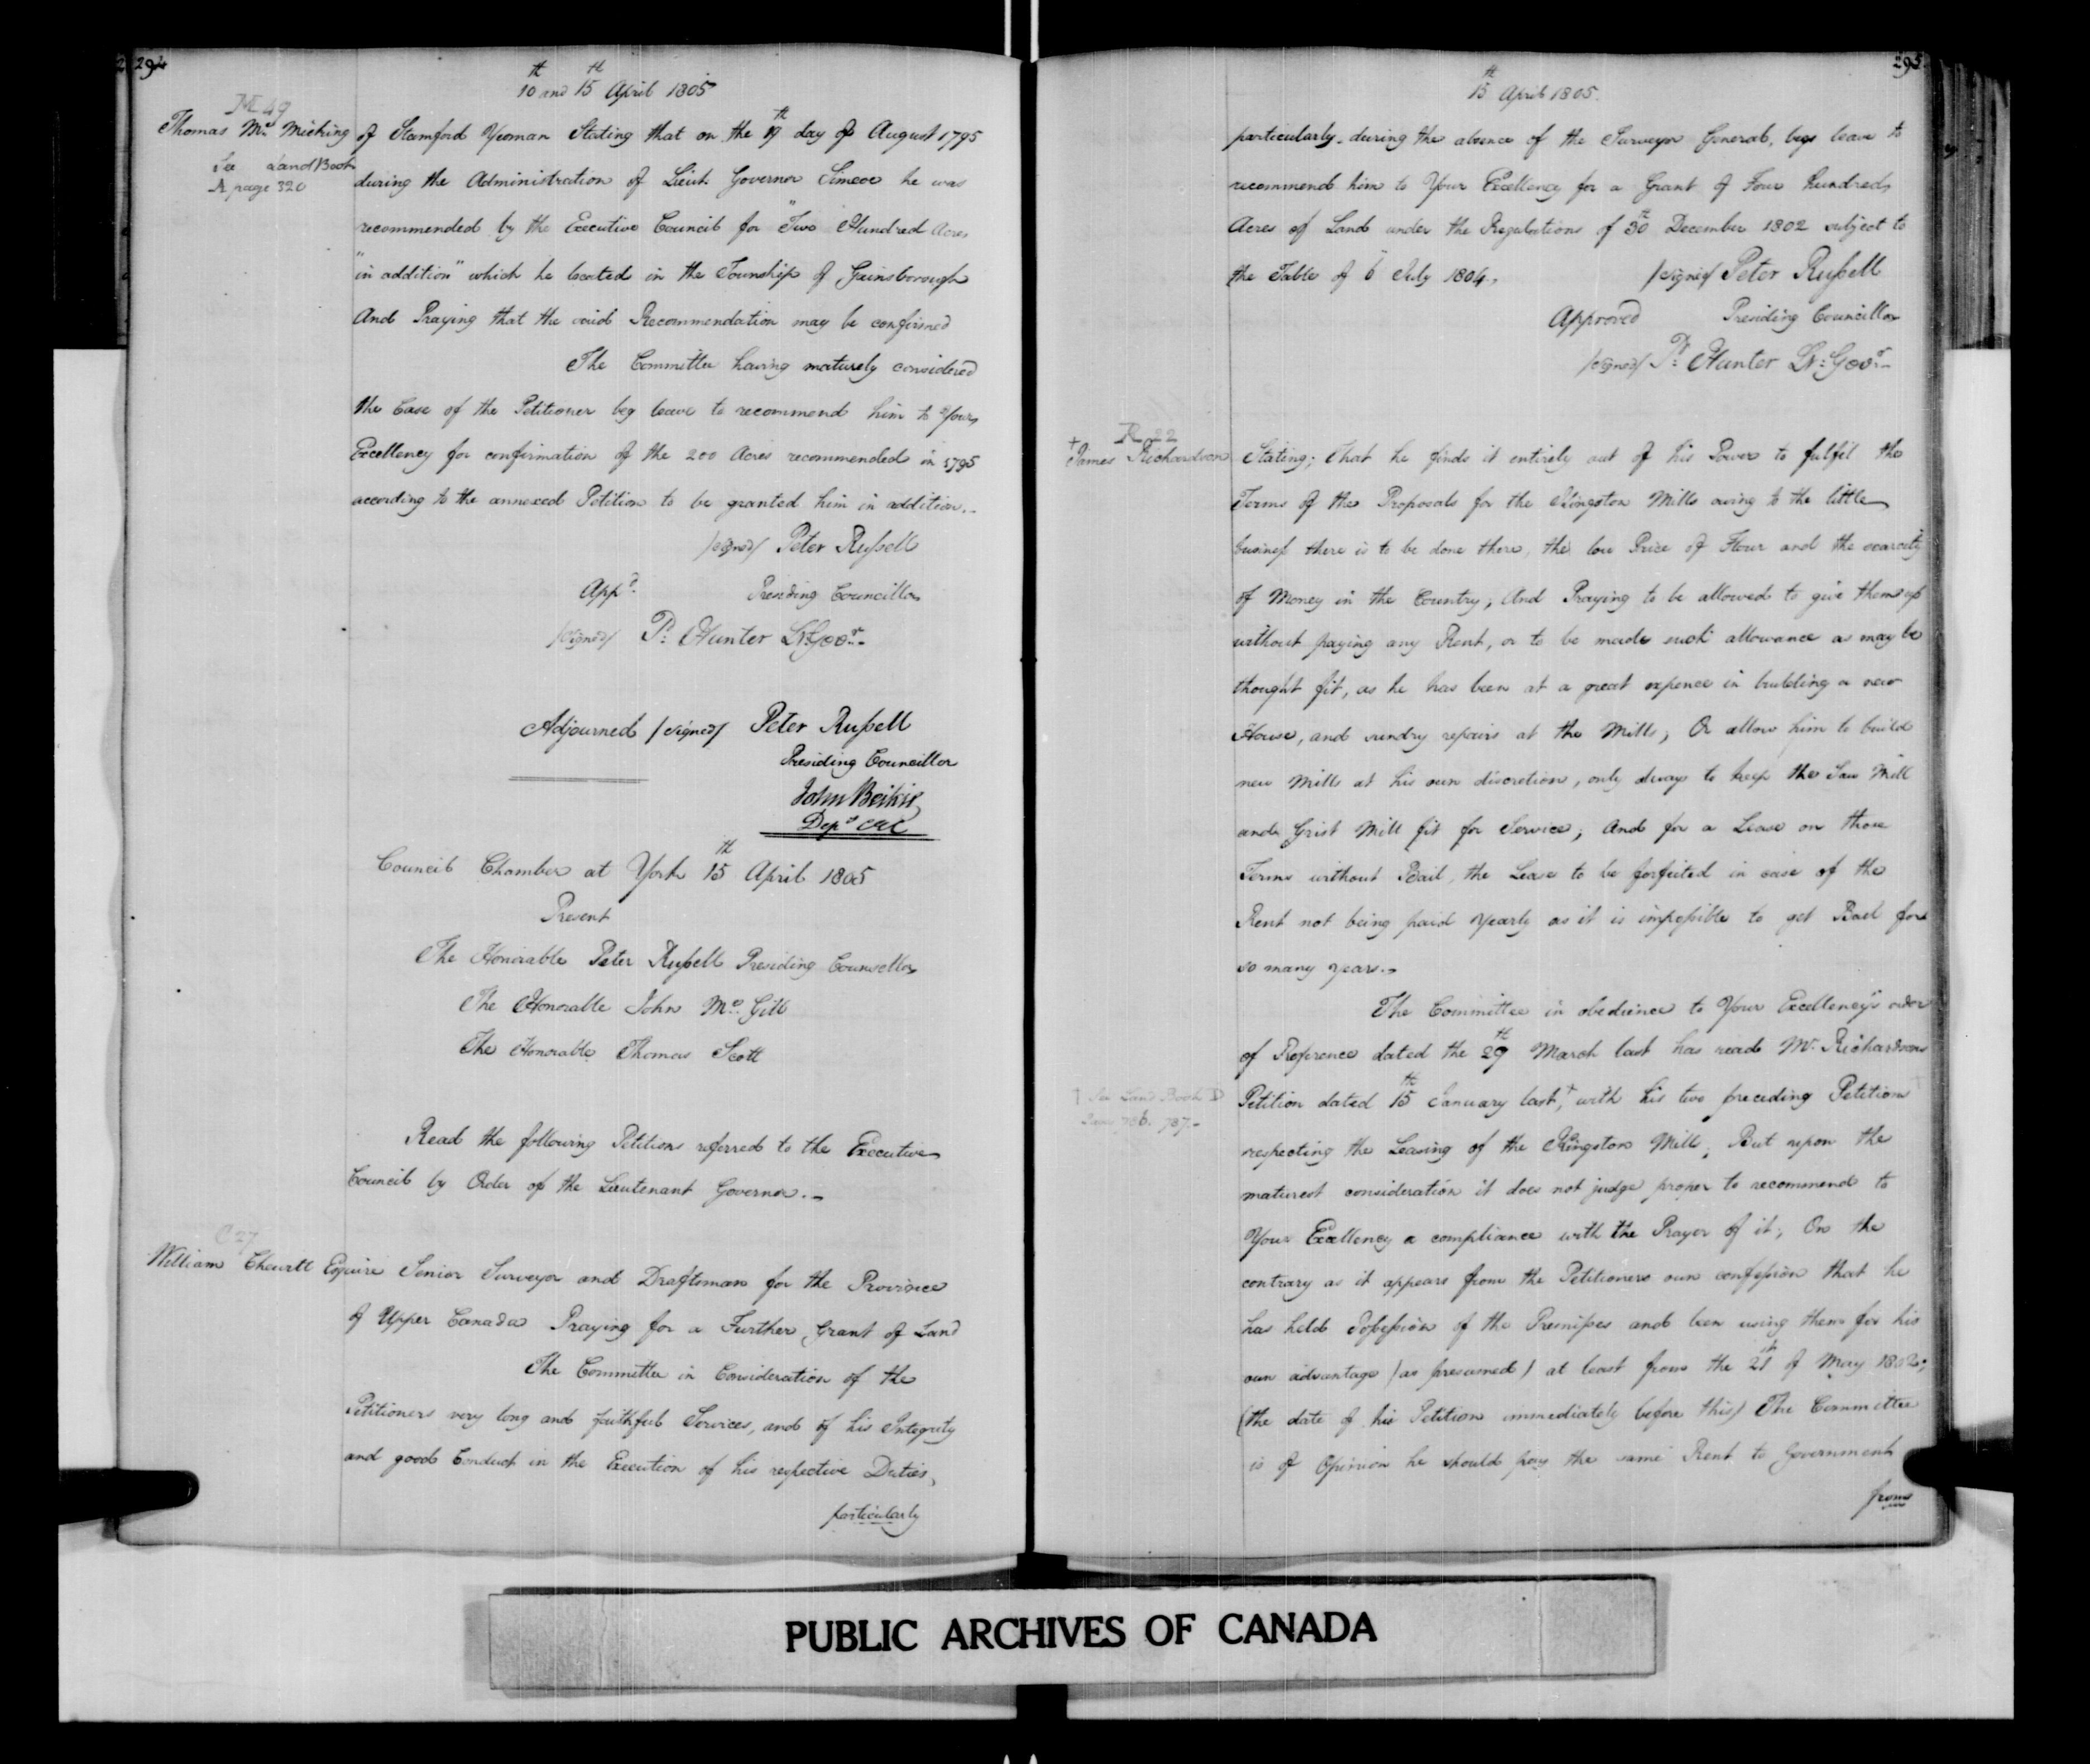 294
10th and 15th April 1805
M 49
Thomas Mc. Micking of Stamford Yeoman Stating that on the 19th day of August 1795
See Land Book
A page 320
during the Administration of Lieut. Governor Simcoe he was
recommended by the Executive Council for "Two Hundred Acres
"in addition" which he located in the Township of Gainsborough
And Praying that the said Recommendation may be confirmed
The Committee having maturely considered
the Case of the Petitioner beg leave to recommend him to Your
Excellency for confirmation of the 200 Acres recommended in 1795
according to the annexed Petition to be granted him in addition.
/signed/ Peter Russell
Appd. Presiding Councillor
/signed/ P: Hunter Lt. Govr.
Adjourned /signed/ Peter Russell
Presiding Councillor
John Beikie
Depy CEC
Council Chamber at York 15th April 1805
Present
The Honorable Peter Russell Presiding Councellor
The Honorable John Mc. Gill
The Honorable Thomas Scott
Read the following Petitions referred to the Executive
Council by Order of the Lieutenant Governor.
C 27
William Chewett Esquire Senior Surveyor and Draftsman for the Province
of Upper Canada Praying for a Further Grant of Land
The Committee in Consideration of the
Petitioners very long and faithful Services, and of his Integrity
and good Conduct in the Execution of his respective Duties,
particularly
295
15th April 1805.
particularly during the absence of the Surveyor General, begs leave to
recommend him to Your Excellency for a Grant of Four hundred
Acres of Land under the Regulations of 30th December 1802 subject to
the Table of 6 July 1804.
/signed/ Peter Russell
Approved Presiding Councillor
/signed/ P: Hunter Lt: Govr.
R 22
+ James Richardson Stating; that he finds it entirely out of his Power to fulfil the
Terms of the Proposals for the Kingston Mills owing to the little
business there is to be done there, the low Price of Flour and the scarcity
of Money in the Country; And Praying to be allowed to give them up
without paying any Rent, or to be made such allowance as may be
thought fit, as he has been at a great expence in building a new
House, and sundry repairs at the Mills; Or allow him to build
new Mills at his own discretion, only always to keep the Saw Mill
and Grist Mill fit for Service; And for a Lease on those
Terms without Bail, the Lease to be forfeited in case of the
Rent not being paid Yearly as it is impossible to get Bail for
so many years.
The Committee in obedience to Your Excellency's order
of Reference dated the 29th March last has read Mr. Richardsons
Petition dated 15th January last,† with his two preceding Petitions †
† See Land Book D
Page 786. 787.
respecting the Leasing of the Kingston Mills; But upon the
maturest consideration it does not judge proper to recommend to
Your Excellency a compliance with the Prayer of it; On the
contrary as it appears from the Petitioners own confession that he
has held Possession of the Premisses and been using them for his
own advantage (as presumed) at least from the 21st of May 1802;
(the date of his Petition immediately before this) The Committee
is of Opinion he should pay the same Rent to Government
from
PUBLIC ARCHIVES OF CANADA